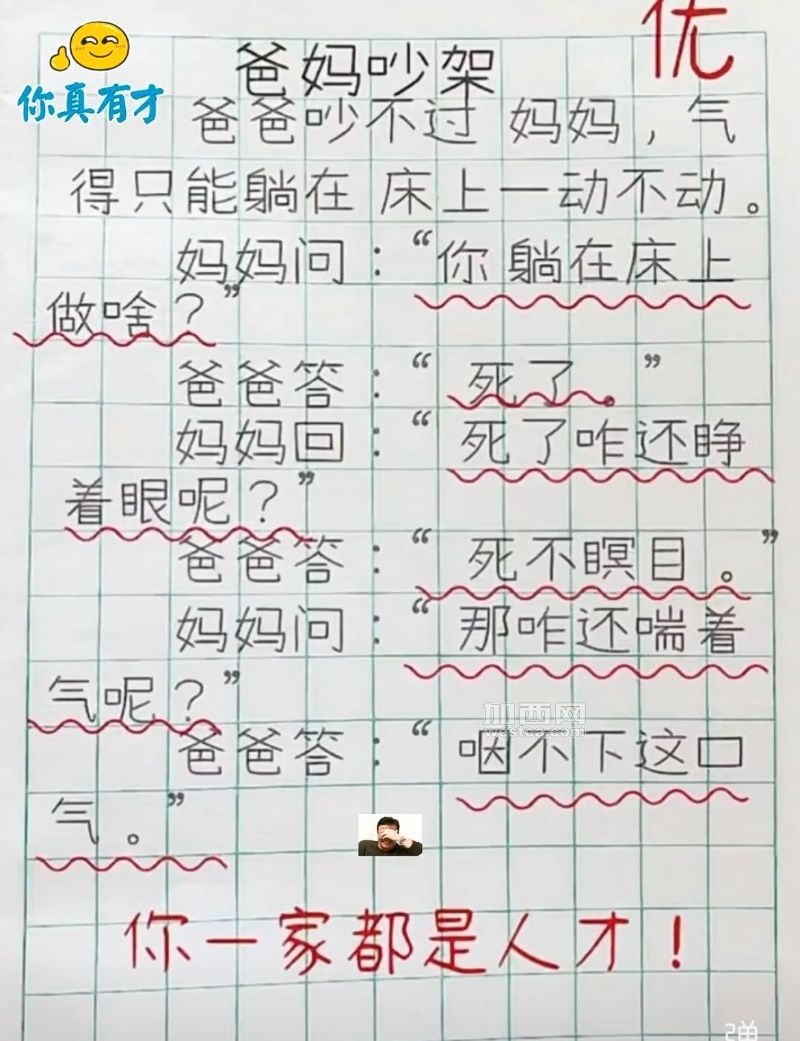 优
你真有才
爸妈吵架
爸爸吵不过 妈妈，气
得只能躺在 床上一动不动。
妈妈问：“你 躺在床上
做啥？”
爸爸答：“ 死了。”
妈妈回：“ 死了咋还睁
着眼呢？”
爸爸答：“ 死不瞑目。”
妈妈问：“ 那咋还喘着
气呢？”
加西网
westca.com
爸爸答：“ 咽不下这口
气。”
你一家都是人才！
弹